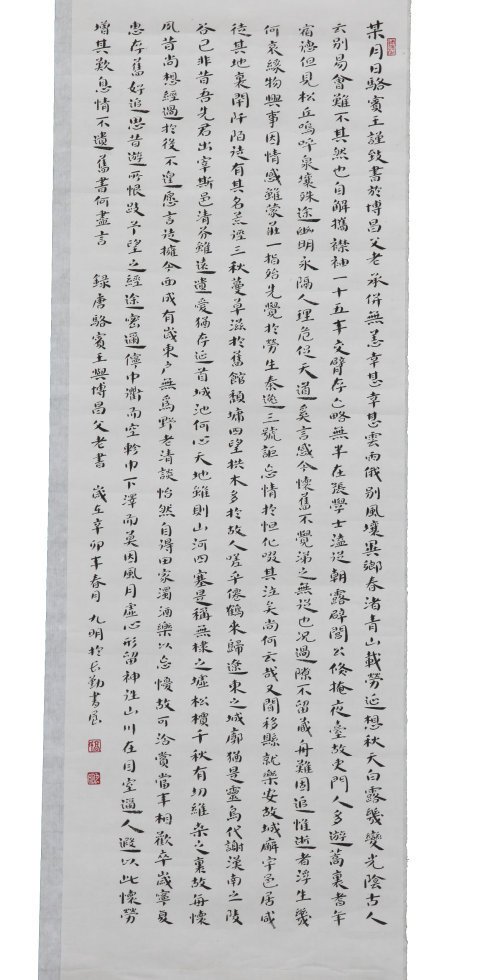 某月日駱賓王謹致書於博昌父老承併無恙幸甚幸甚雲雨俄別風壤異鄉春渚青山載勞延想秋天白露幾變光陰古人
云別易會難不其然也自解攜襟袖一十五年交臂存亡略無半在張學士溘從朝露辟閭公倏掩夜臺故吏門人多遊蒿裏耆年
宿德但見松丘嗚呼泉壤殊途幽明永隔人理危促天道奚言感今懷舊不覺涕之無從也況過隙不留藏舟難固追惟逝者浮生幾
何哀緣物興事因情感雖蒙莊一指殆先覺於勞生秦逸三號詎忘情於怛化啜其泣矣尚何云哉又聞移縣就樂安故城廨宇邑居咸
徙其地裏閈阡陌徒有其名荒徑三秋蔓草滋於舊館頹墉四望拱木多於故人嗟乎僊鶴來歸遼東之城郭猶是靈烏代謝漢南之陵
谷已非昔吾先君出宰斯邑清芬雖遠遺愛猶存延首城池何心天地雖則山河四塞是稱無棣之墟松檟千秋有切維桑之裏故每懷
夙昔尚想經過於役不遑愿言徒擁今西成有歲東戶無為野老清談怡然自得田家濁酒樂以忘憂故可洽賞當年相歡卒歲寧夏
惠存舊好追思昔遊所恨跂予望之經途密邇佇中衢而空軫巾下澤而莫因風月虛心形留神往山川在目室邇人遐以此懷勞
增其歎息情不遺舊書何盡言 錄唐駱賓王與博昌父老書 歲在辛卯年春月 九明於長勤書屋